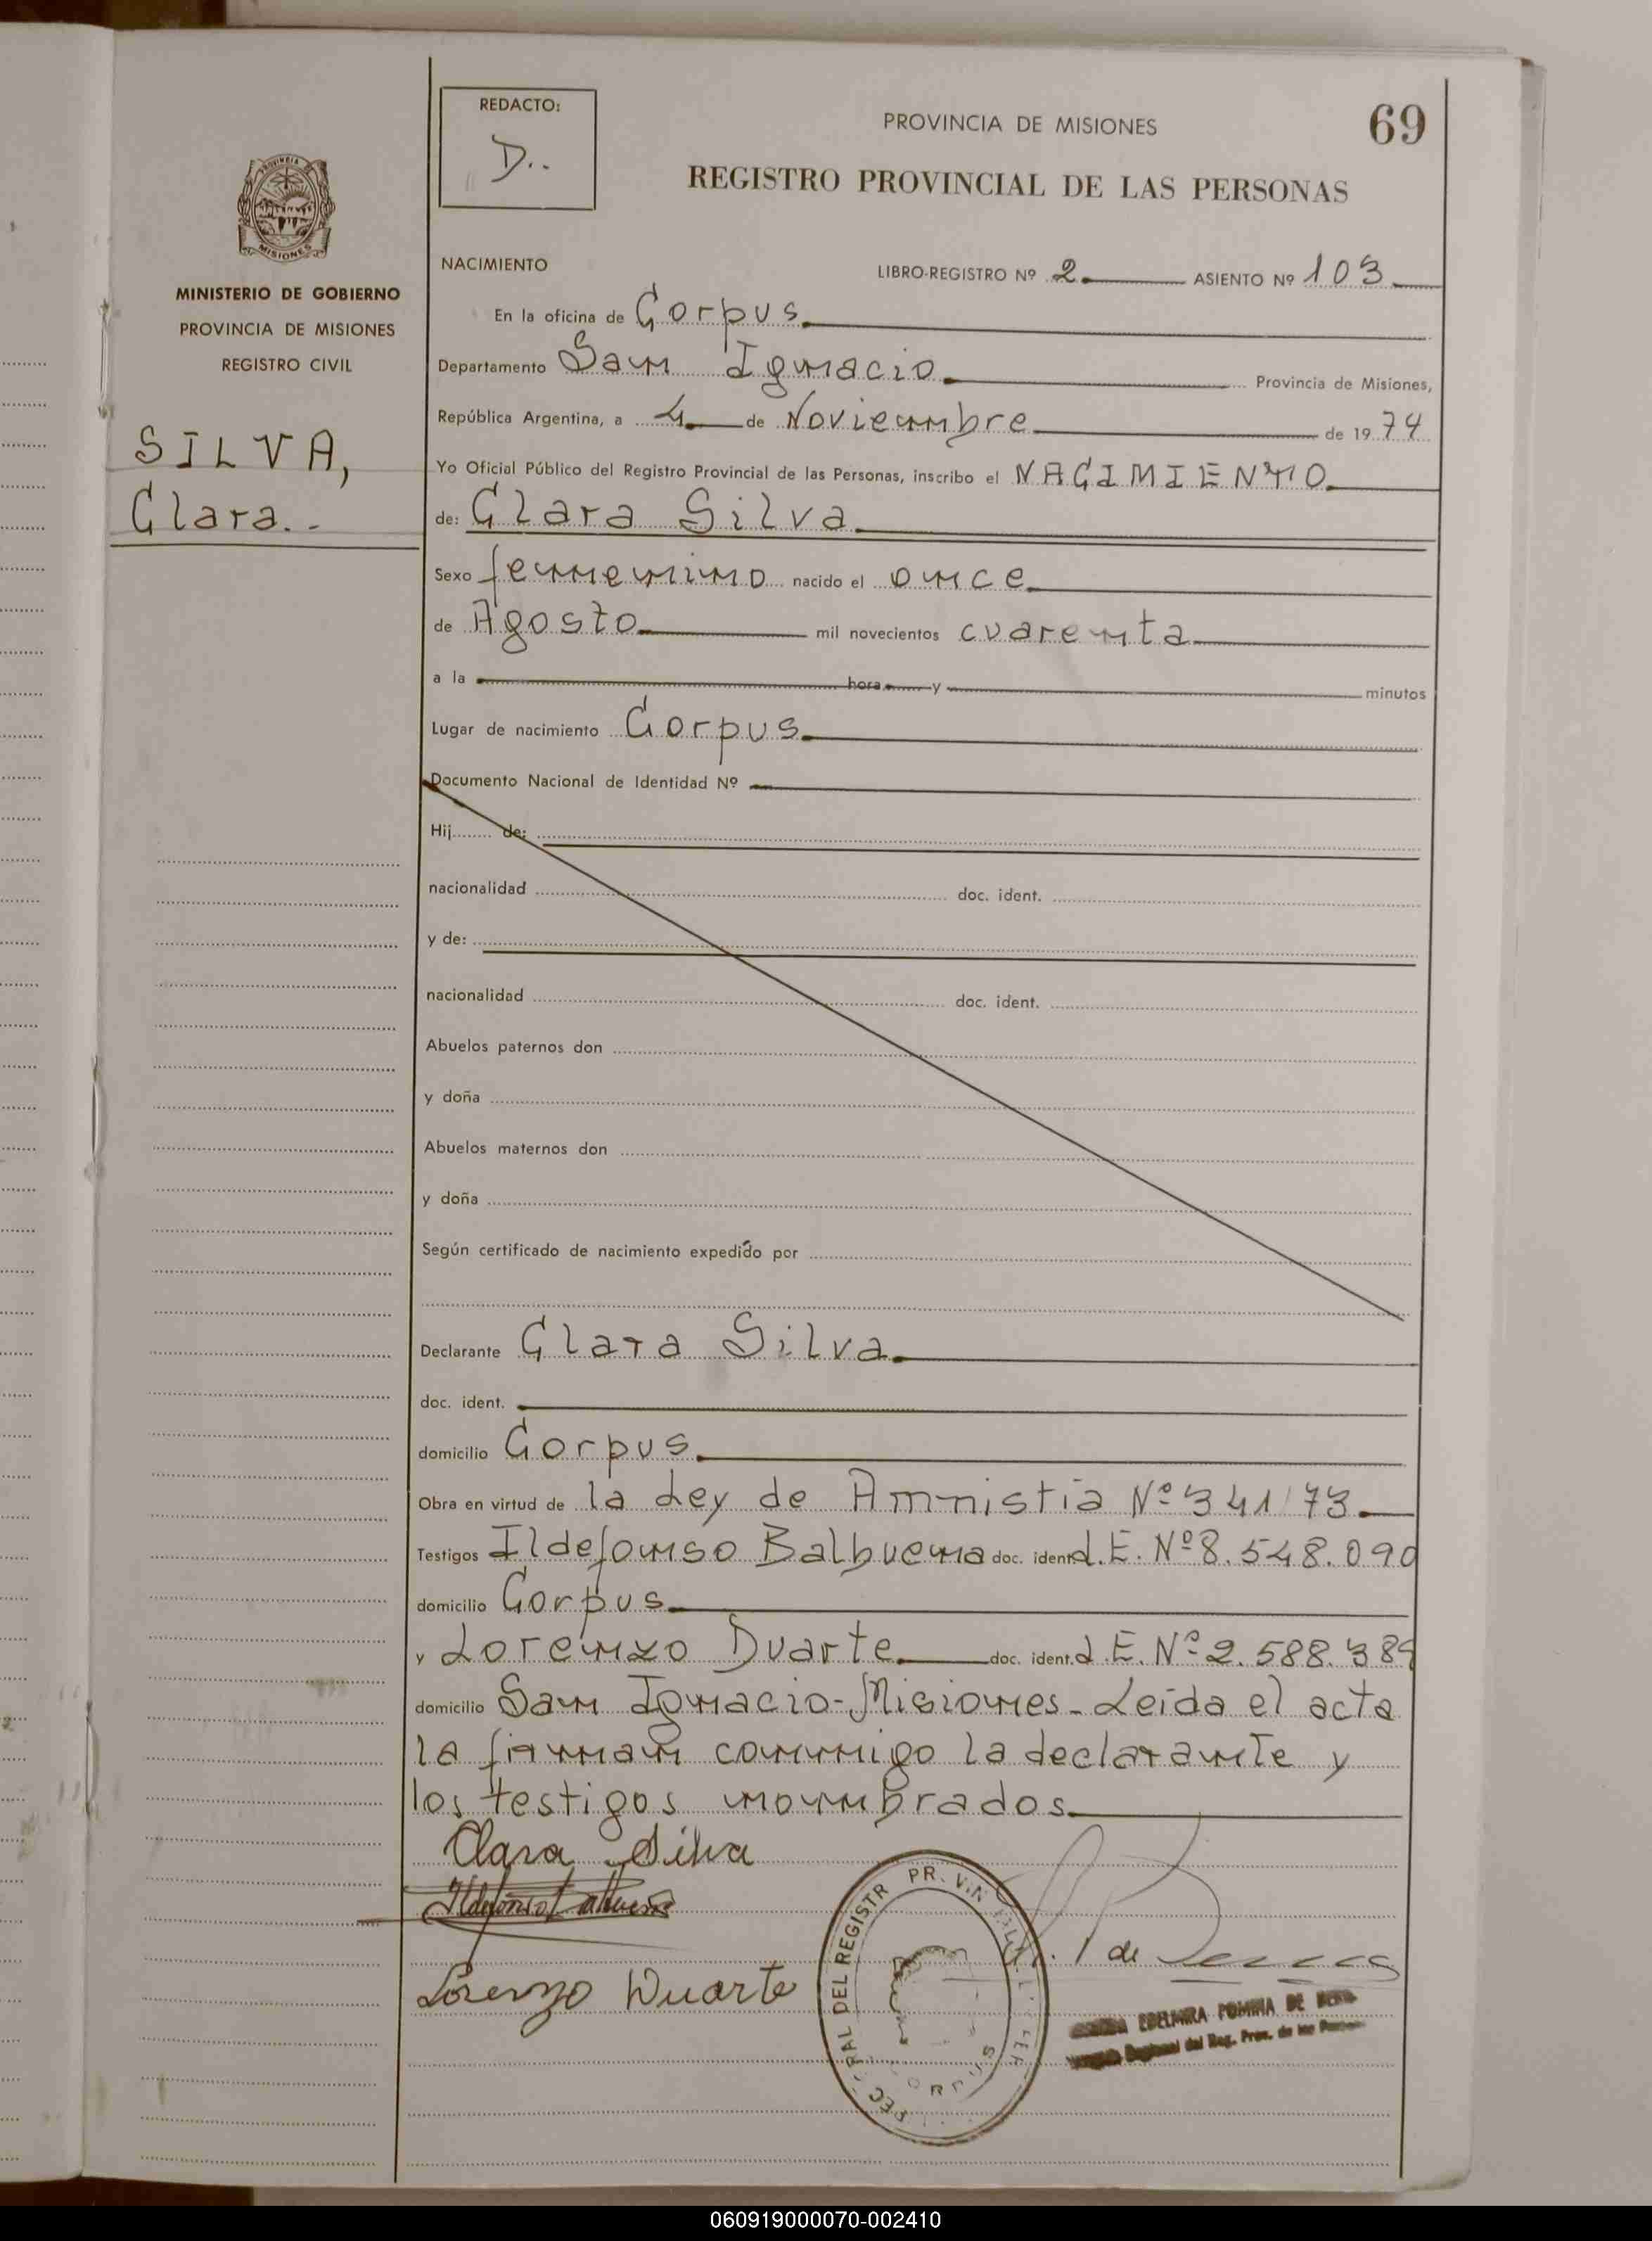 REDACTO:
D..
PROVINCIA DE MISIONES
69
REGISTRO PROVINCIAL DE LAS PERSONAS
MISIONES
MINISTERIO DE GOBIERNO
PROVINCIA DE MISIONES
REGISTRO CIVIL
SILVA,
Clara.-
NACIMIENTO
LIBRO-REGISTRO Nº 2 ASIENTO Nº 103
En la oficina de Corpus
Departamento San Ignacio Provincia de Misiones,
República Argentina, a 4 de Noviembre de 1974
Yo Oficial Público del Registro Provincial de las Personas, inscribo el NACIMIENTO
de: Clara Silva
Sexo femenino nacido el once
de Agosto mil novecientos cuarenta
a la hora y minutos
Lugar de nacimiento Corpus
Documento Nacional de Identidad Nº
Hij de:
nacionalidad doc. ident.
y de:
nacionalidad doc. ident.
Abuelos paternos don
y doña
Abuelos maternos don
y doña
Según certificado de nacimiento expedido por
Declarante Clara Silva
doc. ident.
domicilio Corpus
Obra en virtud de la Ley de Amnistia Nº 341/73
Testigos Ildefonso Balbuena doc. ident L.E. Nº 8.548.090
domicilio Corpus
y Lorenzo Duarte doc. ident. L.E. Nº 2.588.389
domicilio San Ignacio-Misiones- Leida el acta
la firman conmigo la declarante y
los testigos nombrados
Clara Silva
Ildefonso Balbuena
Lorenzo Duarte
DEL REGISTR
de
EDELMIRA POMINA DE
del Reg. Prov. de las
060919000070-002410